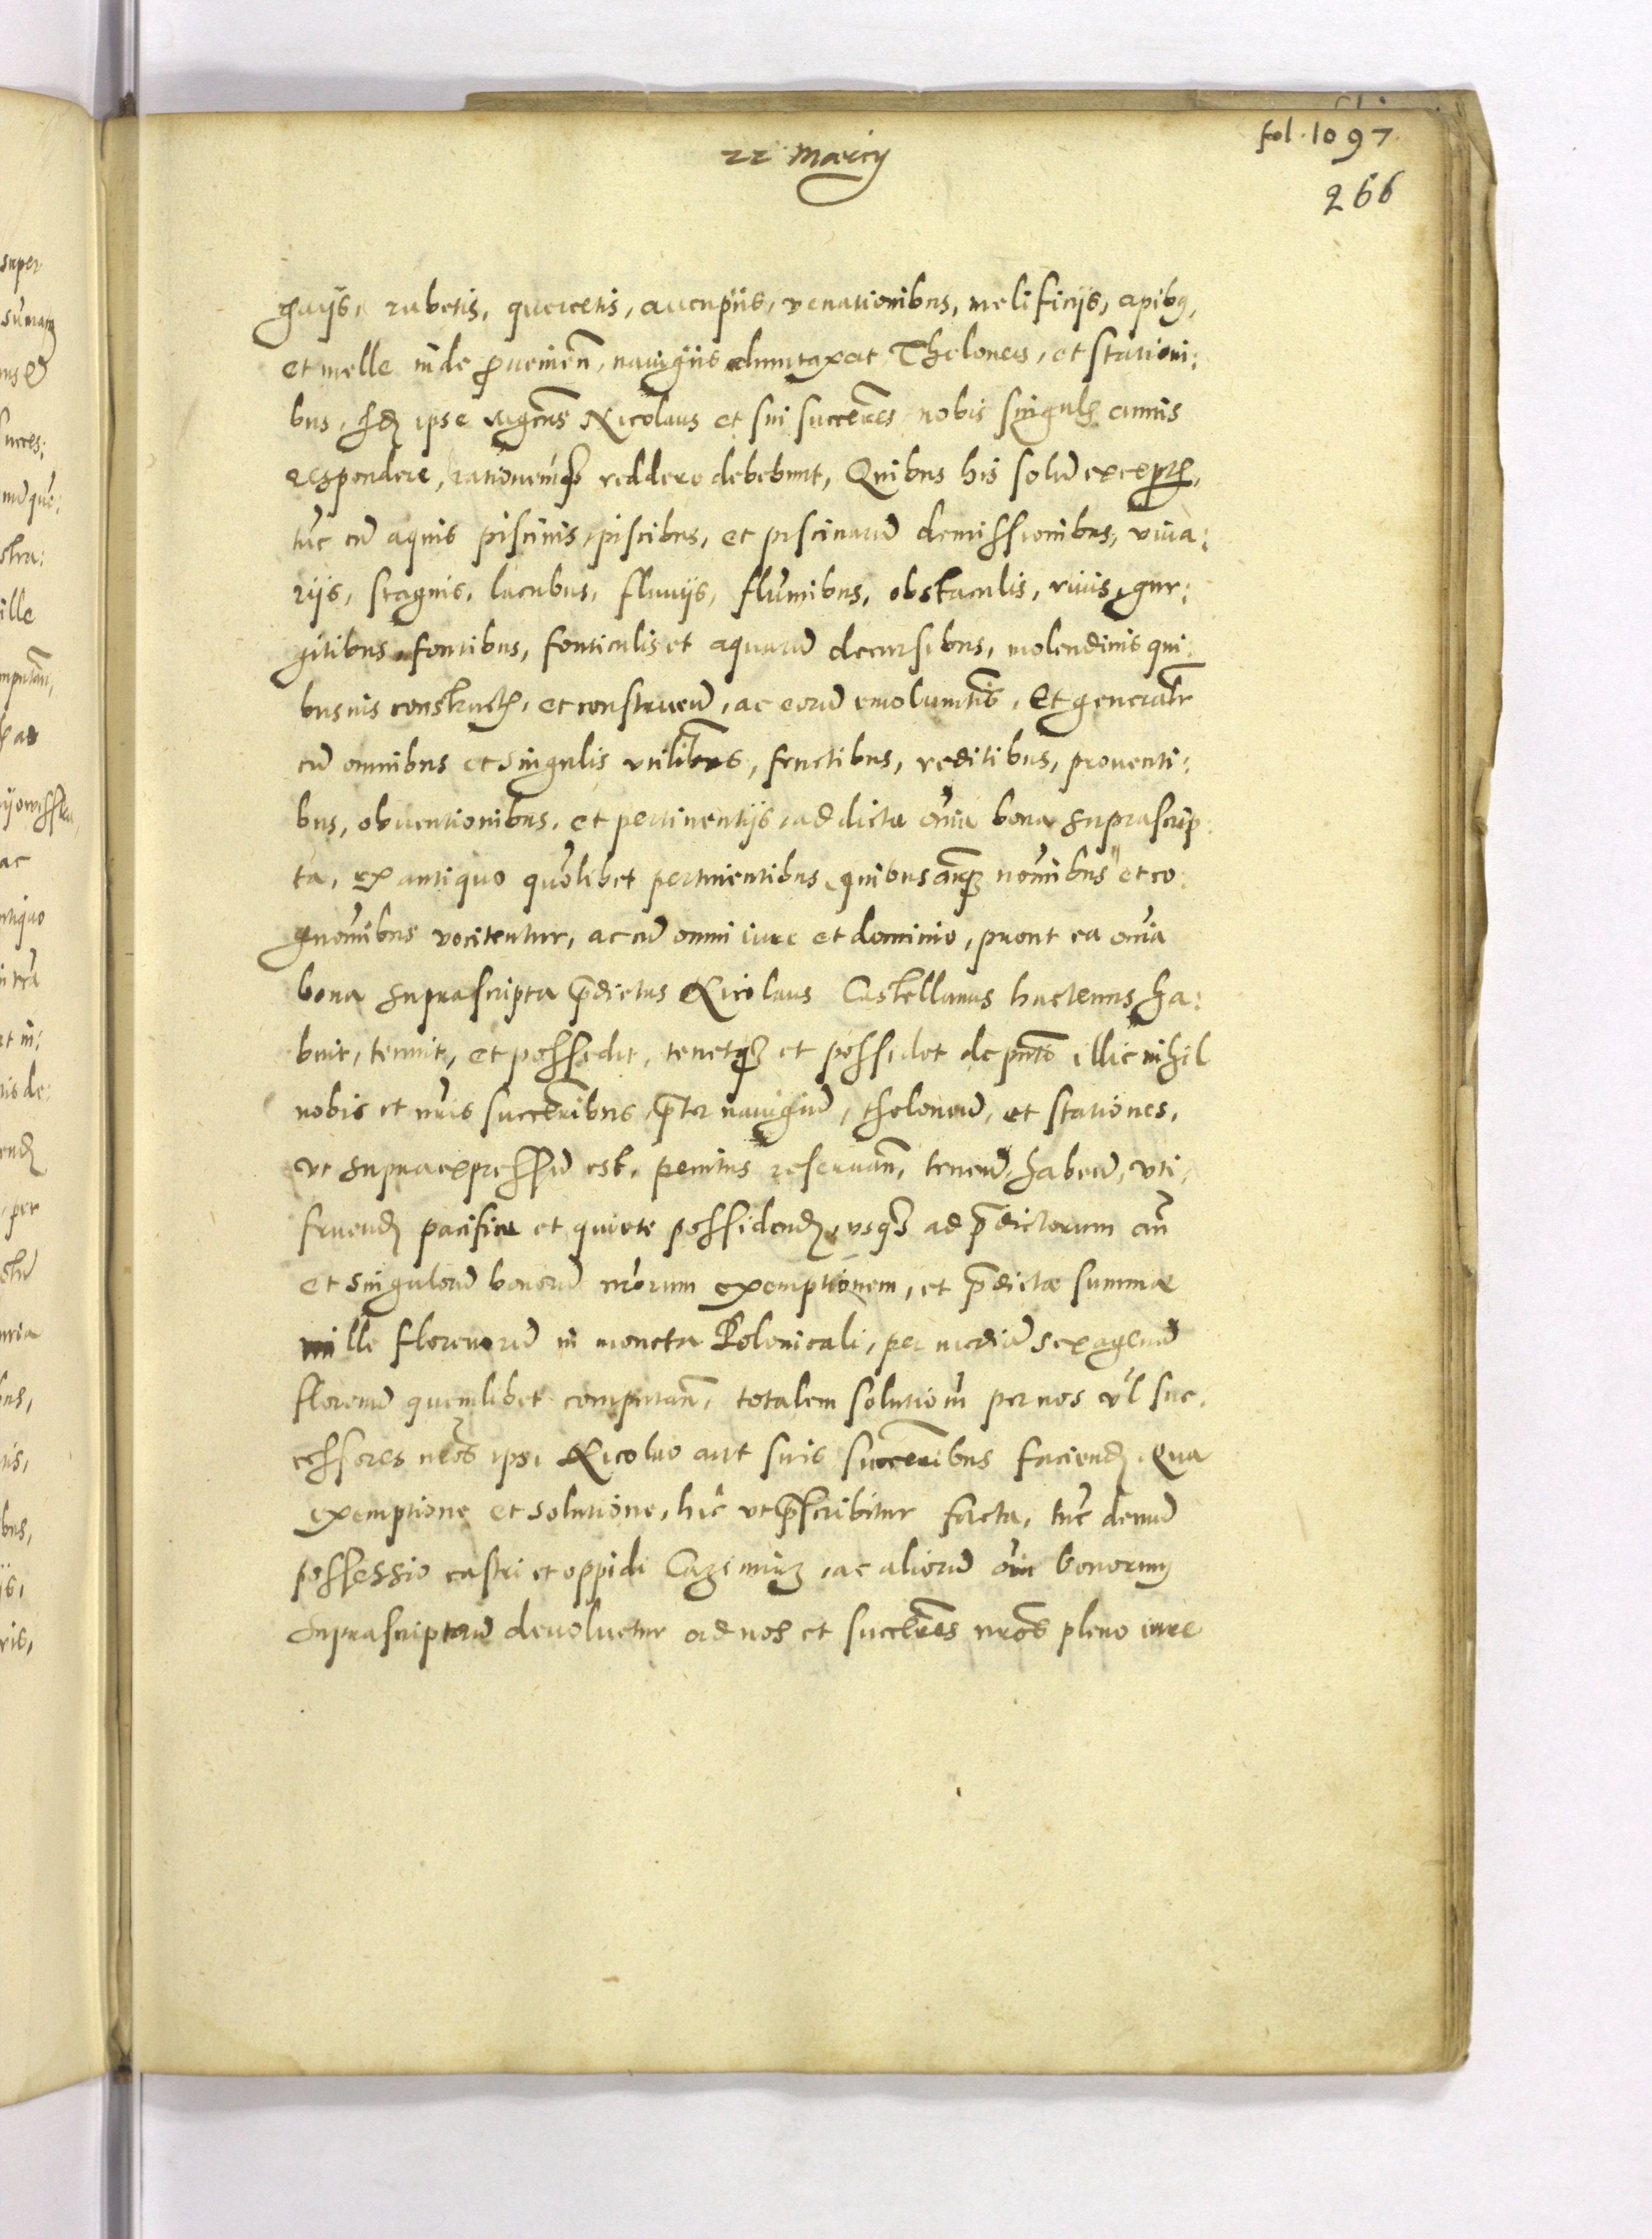 22 Marcij
fol. 1097.
266
gaijs, rubetis, quercetis, aucupijs, venationibus, melificijs, apibq,
et melle inde ꝓuenien̄, nauigijs dumtaxat Theloneis, et stationi:
bus, ipse Nicolaus et sui succeres nobis singul annis
respondere, rationemq reddere debebunt, Quibus his solū except,
tūc cū aquis piscinis, piscibus, et piscinarū demissionibus, viua:
rijs, stagnis, lacubus, fluuijs, flūinibus, obstaculis, riuis, gur:
gitibus, fontibus, fonticulis et aquarū decursibus, molendinis qui:
busuis construct, et construen̄, ac eorū emolumētis, Et generalr
cū omnibus et singulis vtilibus, fructibus, reditibus, prouenti:
bus, obuentionibus, et pertinentijs, ad dicta oīa bona suprascrip:
ta, ex antiquo quolibet pertinentibus, quibuscunq noībus et co:
gnoībus vocitentur, ac cū omni iure et dominio, prout ea oīa
bona suprascripta p̄dictus Nicolaus Castellanus hactenus ha:
buit, tenuit, et possedit, tenetq et possidet de pn̄to illic nihil
nobis et nr̄is succeribus p̄ter nauigiū, theloneū, et stationes,
vt supra expressū est, penitus reseruan̄, tenen̄, haben̄, vti:
fruend pacifice et quiete possidend, vsq ad p̄dictorum om̄
et singulorū bonorū nr̄orum exemptionem, et p̄dictæ summæ
mille florenorū in moneta Polonicali, per mediā sexagenā
florenū quemlibet computan̄, totalem solutioēm per nos vl suc:
cessores nr̄os ipsi Nicolao aut suis succeribus faciend, Qua
exemptione et solutione, hic vt p̄scribitur facta, tūc demū
possessio castri et oppidi Cazimirz, ac aliorū oīm bonorum
suprascriptorū deuoluetur ad nos et succeres nr̄os pleno iure